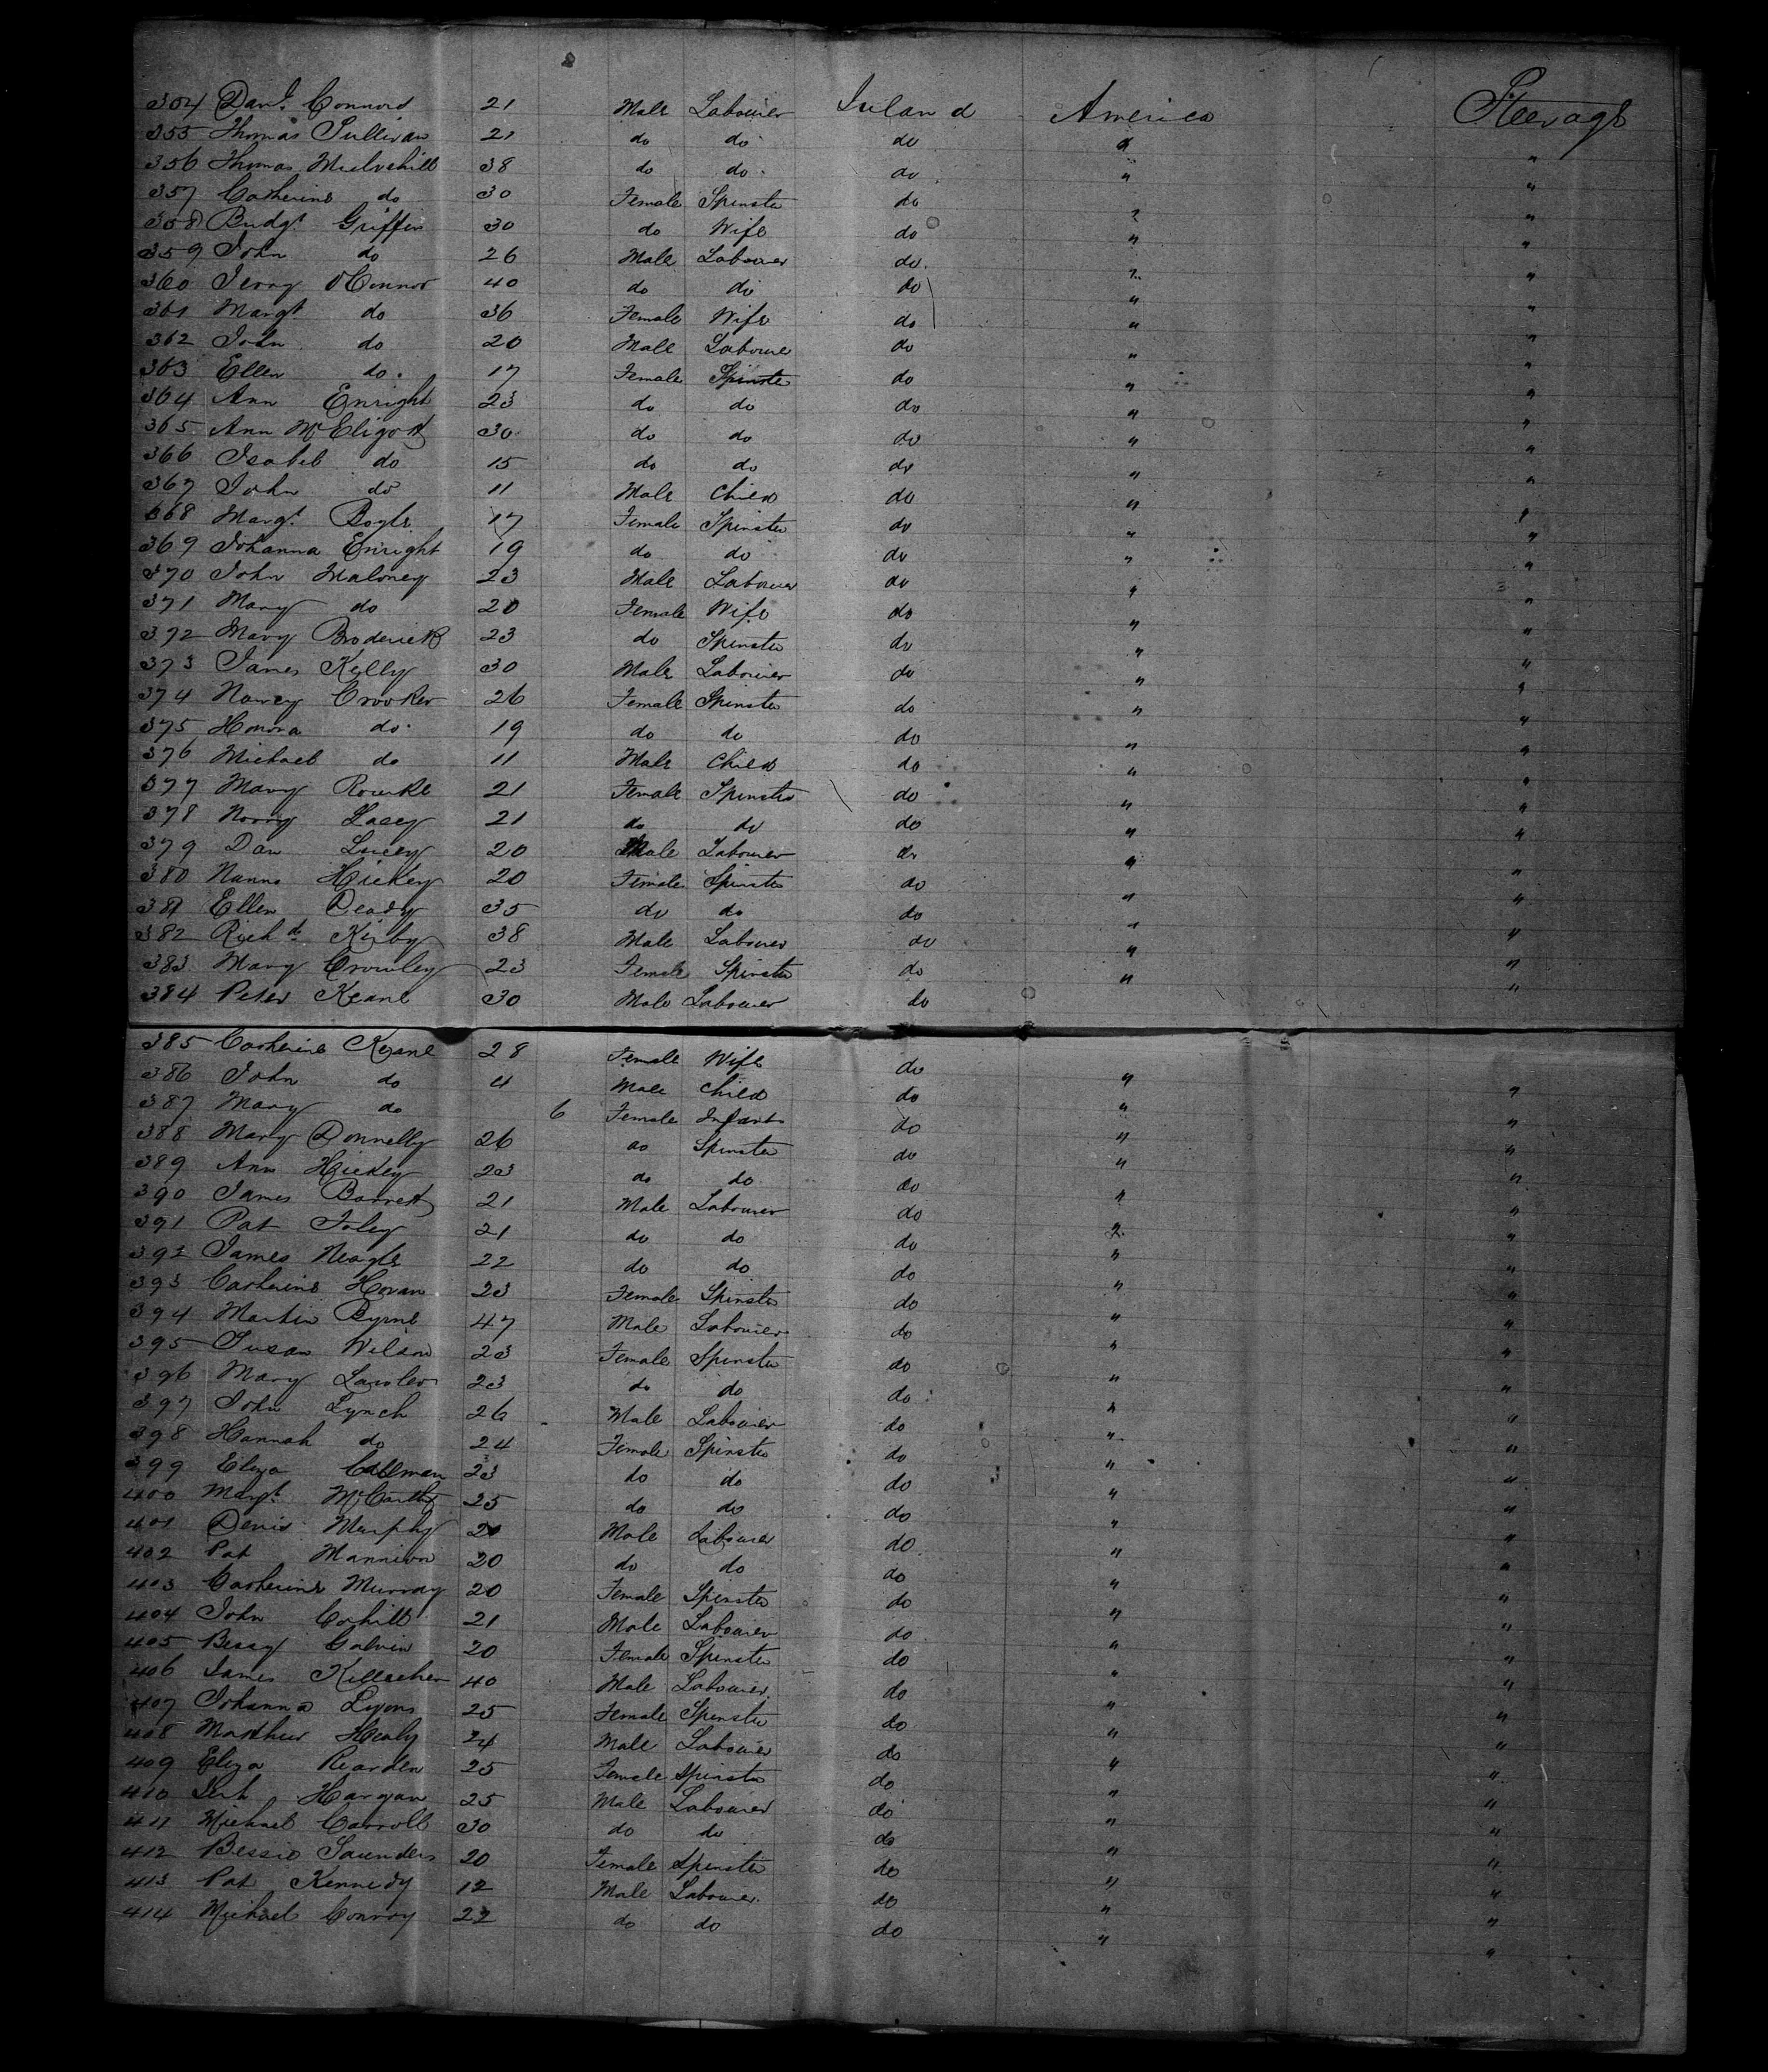 354 Danl. Connors 21 Male Labourer Ireland America Steerage
355 Thomas Sullivan 21 do do do " "
356 Thomas Mulvehill 38 do do do " "
357 Catherine do 30 Female Spinster do " "
358 Bridgt Griffin 30 do Wife do " "
359 John do 26 Male Labourer do " "
360 Jerry O'Connor 40 do do do " "
361 Margt do 36 Female Wife do " "
362 John do 20 Male Labourer do " "
363 Ellen do 17 Female Spinster do " "
364 Ann Enright 23 do do do " "
365 Ann McEligott 30 do do do " "
366 Isabel do 15 do do do " "
367 John do 11 Male Child do " "
368 Margt. Bogle 17 Female Spinster do " "
369 Johanna Enright 19 do do do " "
370 John Maloney 23 Male Labourer do " "
371 Mary do 20 Female Wife do " "
372 Mary Broderick 23 do Spinster do " "
373 James Kelly 30 Male Labourer do " "
374 Nancy Crooker 26 Female Spinster do " "
375 Honora do 19 do do do " "
376 Michael do 11 Male Child do " "
377 Mary Rourke 21 Female Spinster do " "
378 Norry Lacey 21 do do do " "
379 Dan Lucey 20 Male Labourer do " "
380 Nanno Hickey 20 Female Spinster do " "
381 Ellen Deady 35 do do do " "
382 Richd Kirby 38 Male Labourer do " "
383 Mary Crowley 23 Female Spinster do " "
384 Peter Keane 30 Male Labourer do
385 Catherine Keane 28 Female Wife do " "
386 John do 4 Male Child do " "
387 Mary do 6 Female Infant do " "
388 Mary Donnelly 26 do Spinster do " "
389 Ann Hickey 23 do do do " "
390 James Barrett 21 Male Labourer do " "
391 Pat Foley 21 do do do " "
392 James Neagle 22 do do do " "
393 Catherine Horan 23 Female Spinster do " "
394 Martin Byrne 47 Male Labourer do " "
395 Susan Wilson 23 Female Spinster do " "
396 Mary Lawler 23 do do do " "
397 John Lynch 26 Male Labourer do " "
398 Hannah do 24 Female Spinster do " "
399 Eliza Callman 23 do do do " "
400 Margt. McCarthy 25 do do do " "
401 Denis Murphy 20 Male Labourer do " "
402 Pat Mannion 20 do do do " "
403 Catherine Murray 20 Female Spinster do " "
404 John Cahill 21 Male Labourer do " "
405 Bessy Galvin 20 Female Spinster do " "
406 James Killeher 40 Male Labourer do " "
407 Johanna Lyons 25 Female Spinster do " "
408 Matthew Healy 24 Male Labourer do " "
409 Eliza Rearden 25 Female Spinster do " "
410 Hargan 25 Male Labourer do " "
411 Michael Carroll 30 do do do " "
412 Bessie Saunders 20 Female Spinster do " "
413 Pat Kennedy 12 Male Labourer do " "
414 Michael Conroy 22 do do do " "